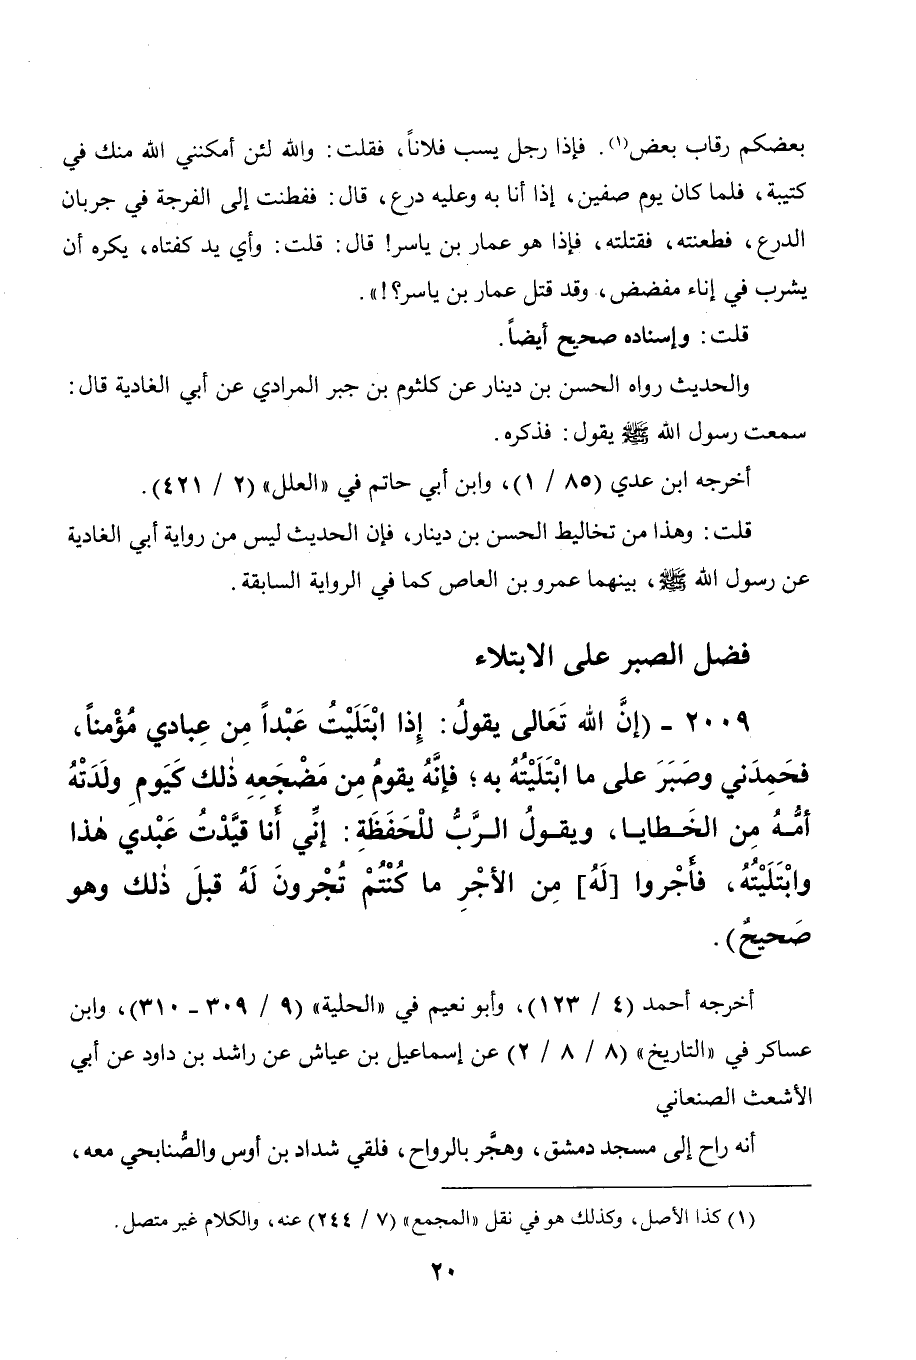 بعضكم رقاب بعض(١). فإذا رجل يسب فلاناً، فقلت: والله لئن أمكنني الله منك في
كتيبة، فلما كان يوم صفين، إذا أنا به وعليه درع، قال: ففطنت إلى الفرجة في جربان
الدرع، فطعنته، فقتلته، فإذا هو عمار بن ياسر! قال: قلت: وأي يد كفتاه، يكره أن
يشرب في إناء مفضض، وقد قتل عمار بن ياسر؟!».
قلت: وإسناده صحيح أيضاً.
والحديث رواه الحسن بن دينار عن كلثوم بن جبر المرادي عن أبي الغادية قال:
سمعت رسول الله ﷺ يقول: فذكره.
أخرجه ابن عدي (٨٥ / ١)، وابن أبي حاتم في «العلل» (٢ / ٤٢١).
قلت: وهذا من تخاليط الحسن بن دينار، فإن الحديث ليس من رواية أبي الغادية
عن رسول الله ﷺ، بينهما عمرو بن العاص كما في الرواية السابقة.
فضل الصبر على الابتلاء
٢٠٠٩ - (إنَّ الله تَعَالى يقولُ: إِذا ابْتَلَيْتُ عَبْداً مِن عِبادي مُؤْمناً،
فحَمِدَني وصَبَرَ على ما ابْتَلَيْتُهُ به؛ فإنَّهُ يقومُ مِن مَضْجَعِهِ ذٰلك كَيَومِ ولَدَتْهُ
أمُّـهُ مِن الخَـطايـا، ويقـولُ الـرَّبُّ للْحَفَظَةِ: إنِّي أَنا قيَّدْتُ عَبْدي هٰذا
وابْتَلَيْتُهُ، فأَجْروا [لَهُ] مِن الأجْرِ ما كُنْتُمْ تُجْرونَ لَهُ قبلَ ذٰلك وهو
صَحيحٌ).
أخرجه أحمد (٤ / ١٢٣)، وأبو نعيم في «الحلية» (٩ / ٣٠٩ - ٣١٠)، وابن
عساكر في «التاريخ» (٨ / ٨ / ٢) عن إسماعيل بن عياش عن راشد بن داود عن أبي
الأشعث الصنعاني
أنه راح إلى مسجد دمشق، وهجَّر بالرواح، فلقي شداد بن أوس والصُّنابحي معه،
(١) كذا الأصل، وكذلك هو في نقل «المجمع» (٧ / ٢٤٤) عنه، والكلام غير متصل.
٢٠